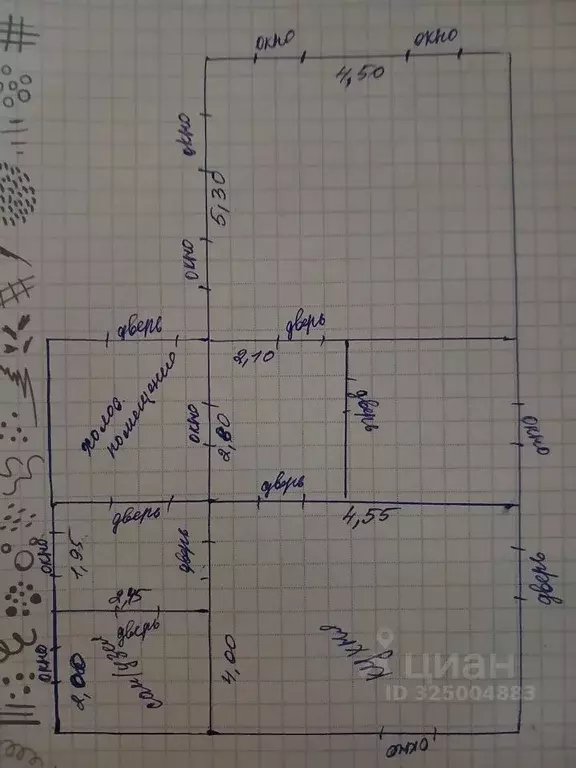 окно
окно
4,50
окно
5,30
окно
дверь
дверь
2,10
холод.
помещение
окно
2,80
дверь
окно
дверь
дверь
4,55
окно
1,95
дверь
дверь
2,45
дверь
сан/узел
окно
2,00
4,00
кухня
циан
ID 325004883
окно